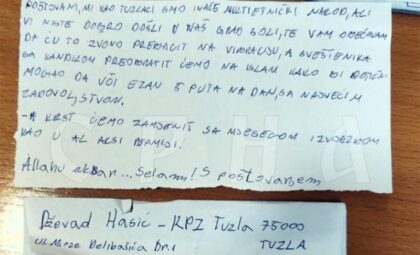 POŠTOVANI, MI KAO TUZLACI SMO INAČE MULTIETNIČKI NAROD, ALI
VI NISTE DOBRO DOŠLI U NAŠ GRAD SOLI, TE VAM OBEĆAVAM
DA ĆU TO ZVONO PREBACIT NA VIBRACIJU, A SVEŠTENIKA
SA KANDILOM PREOBRATIT ĆEMO NA ISLAM KAKO BI DOTIČNI
MOGAO DA UČI EZAN 5 PUTA NA DAN, SA NAJVEĆIM
ZADOVOLJSTVOM.
- A KRST ĆEMO ZAMJENIT SA MJESECOM I ZVIJEZDOM
KAO U AL AKSI DŽAMIJI.
Allahu akbar... Selam! S poštovanjem
CPHA
Dževad Hasić - KPZ Tuzla 75000
Ul. Mirze Delibašića Br.1 TUZLA